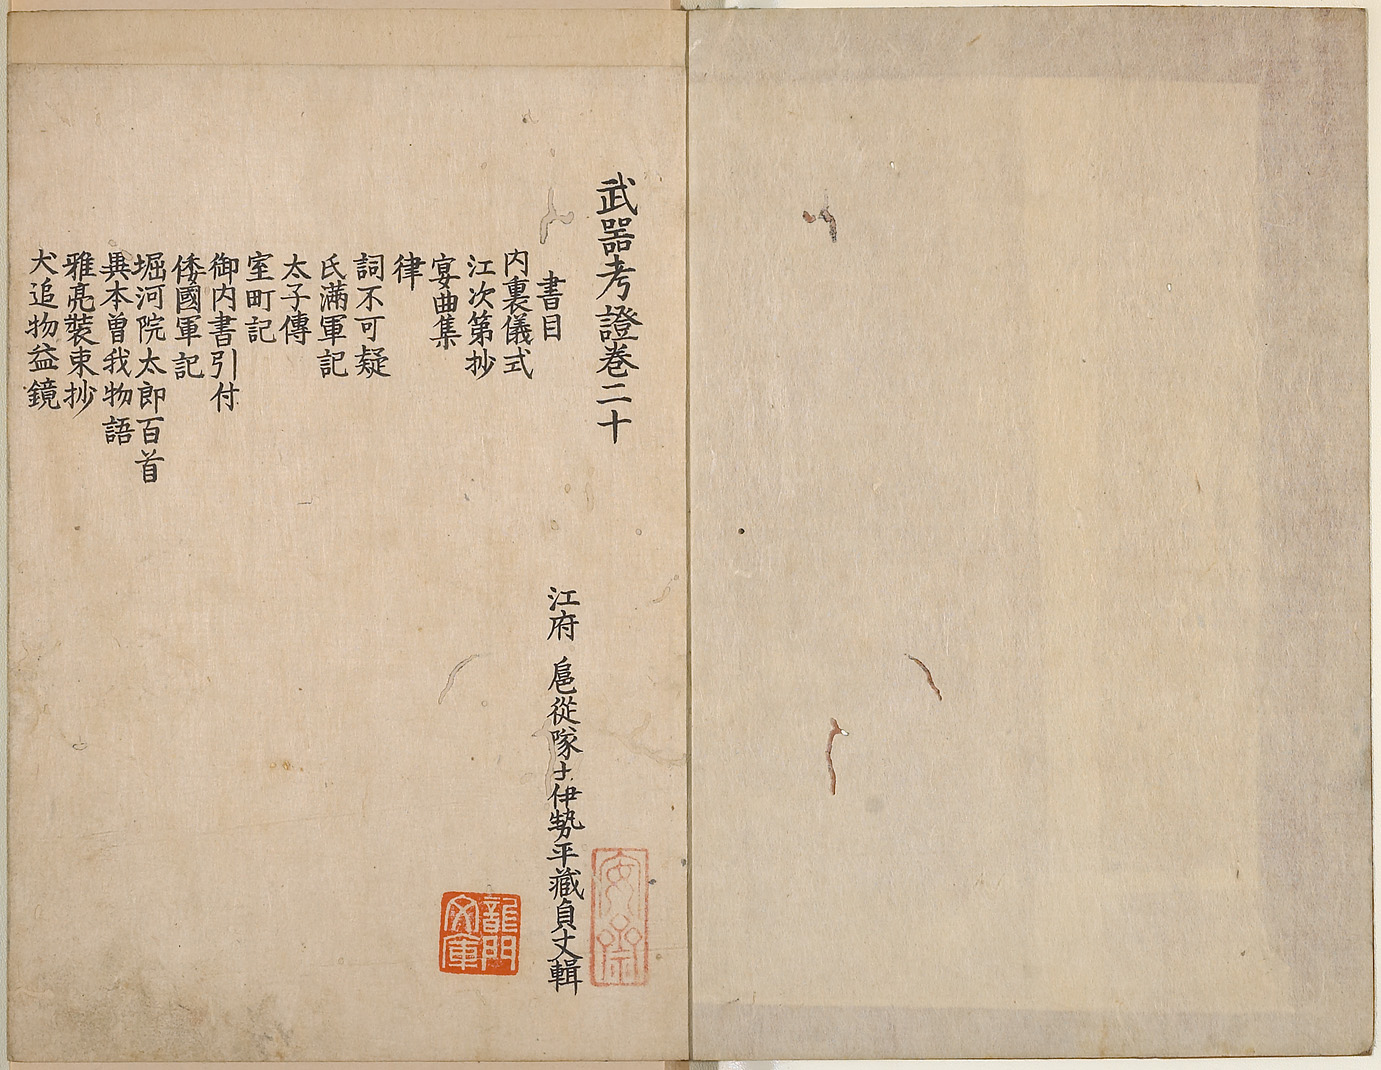 武器考證卷二十
書目
江府 扈從隊士伊勢平藏貞丈輯
内裏儀式
江次第抄
宴曲集
律
詞不可疑
氏滿軍記
太子傳
室町記
御内書引付
倭國軍記
堀河院太郎百首
異本曽我物語
雅亮裝束抄
犬追物益鏡
龍門
文庫